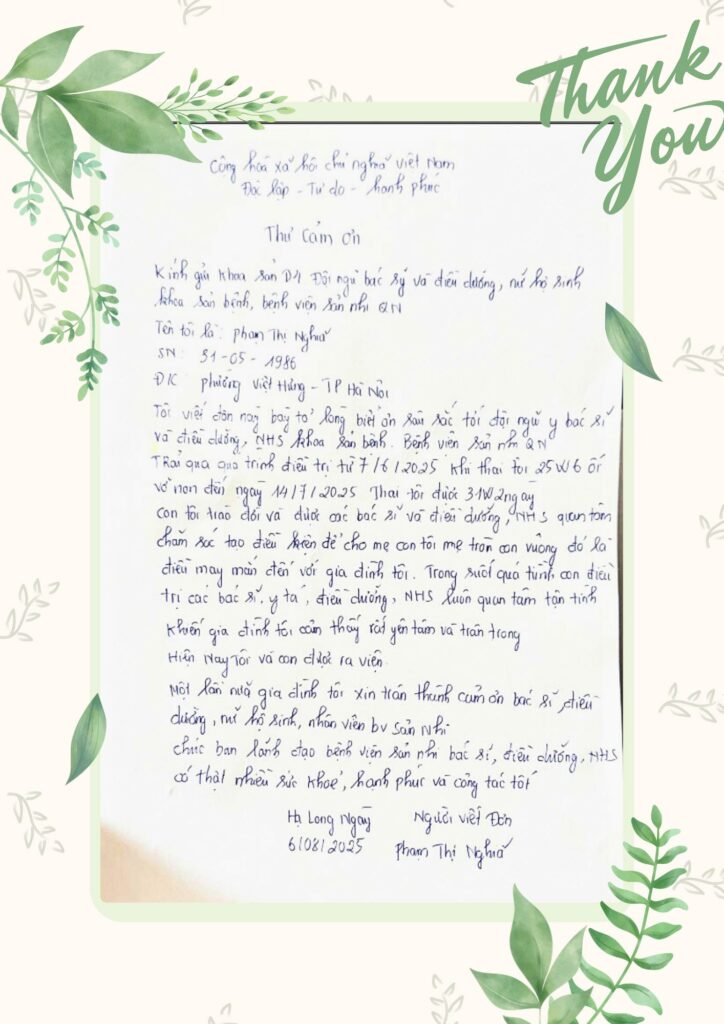 Thank
You
Cộng hoà xã hội chủ nghĩa Việt Nam
Độc lập - Tự do - hạnh phúc
Thư Cảm ơn
Kính gửi khoa sản D4 Đội ngũ bác sỹ và điều dưỡng, nữ hộ sinh
khoa sản bệnh, bệnh viện sản nhi QN
Tên tôi là: phạm Thị Nghĩa
SN: 31-05-1986
Đ/C: phường việt Hưng - TP Hà Nôi
Tôi viết đơn này bày tỏ lòng biết ơn sâu sắc tới đội ngũ y bác sĩ
và điều dưỡng, NHS khoa sản bệnh. Bệnh viện sản nhi QN
Trải qua quá trình điều trị từ 7/6/2025 khi thai tôi 25W6 ối
vỡ non đến ngày 14/7/2025 Thai tôi được 31W2ngày
con tôi trào đời và được các bác sĩ và điều dưỡng, NHS quan tâm
chăm sóc tạo điều kiện để cho mẹ con tôi mẹ tròn con vuông đó là
điều may mắn đến với gia đình tôi. Trong suốt quá trình con điều
trị các bác sĩ, y tá, điều dưỡng, NHS luôn quan tâm tận tình
khiến gia đình tôi cảm thấy rất yên tâm và trân trọng
Hiện Nay Tôi và con được ra viện.
Một lần nữa gia đình tôi xin trân thành cảm ơn bác sĩ, điều
dưỡng, nữ hộ sinh, nhân viên bv Sản Nhi
chúc ban lãnh đạo bệnh viện sản nhi bác sĩ, điều dưỡng, NHS
có thật nhiều sức khoẻ, hạnh phúc và công tác tốt
Hạ Long Ngày Người viết Đơn
6/08/2025 phạm Thị Nghĩa